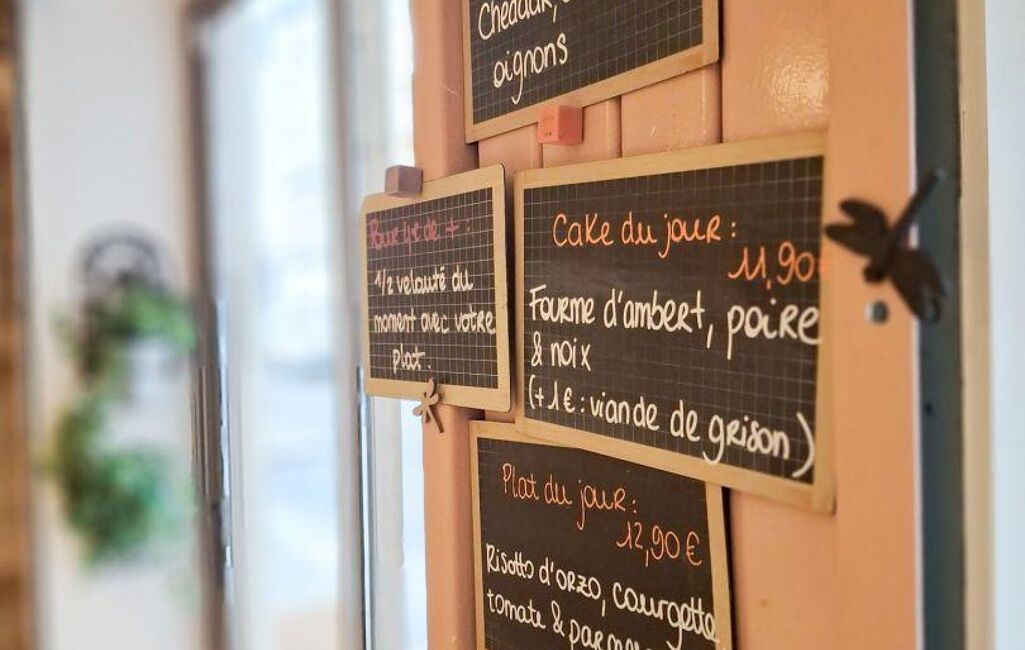 Cheddar,
oignons
Pour 1€ de + :
1/2 velouté du
moment avec votre
plat.
Cake du jour :
11,90€
Fourme d'ambert, poire
& noix
(+1€ : viande de grison)
Plat du jour :
12,90 €
Risotto d'orzo, courgette
tomate &